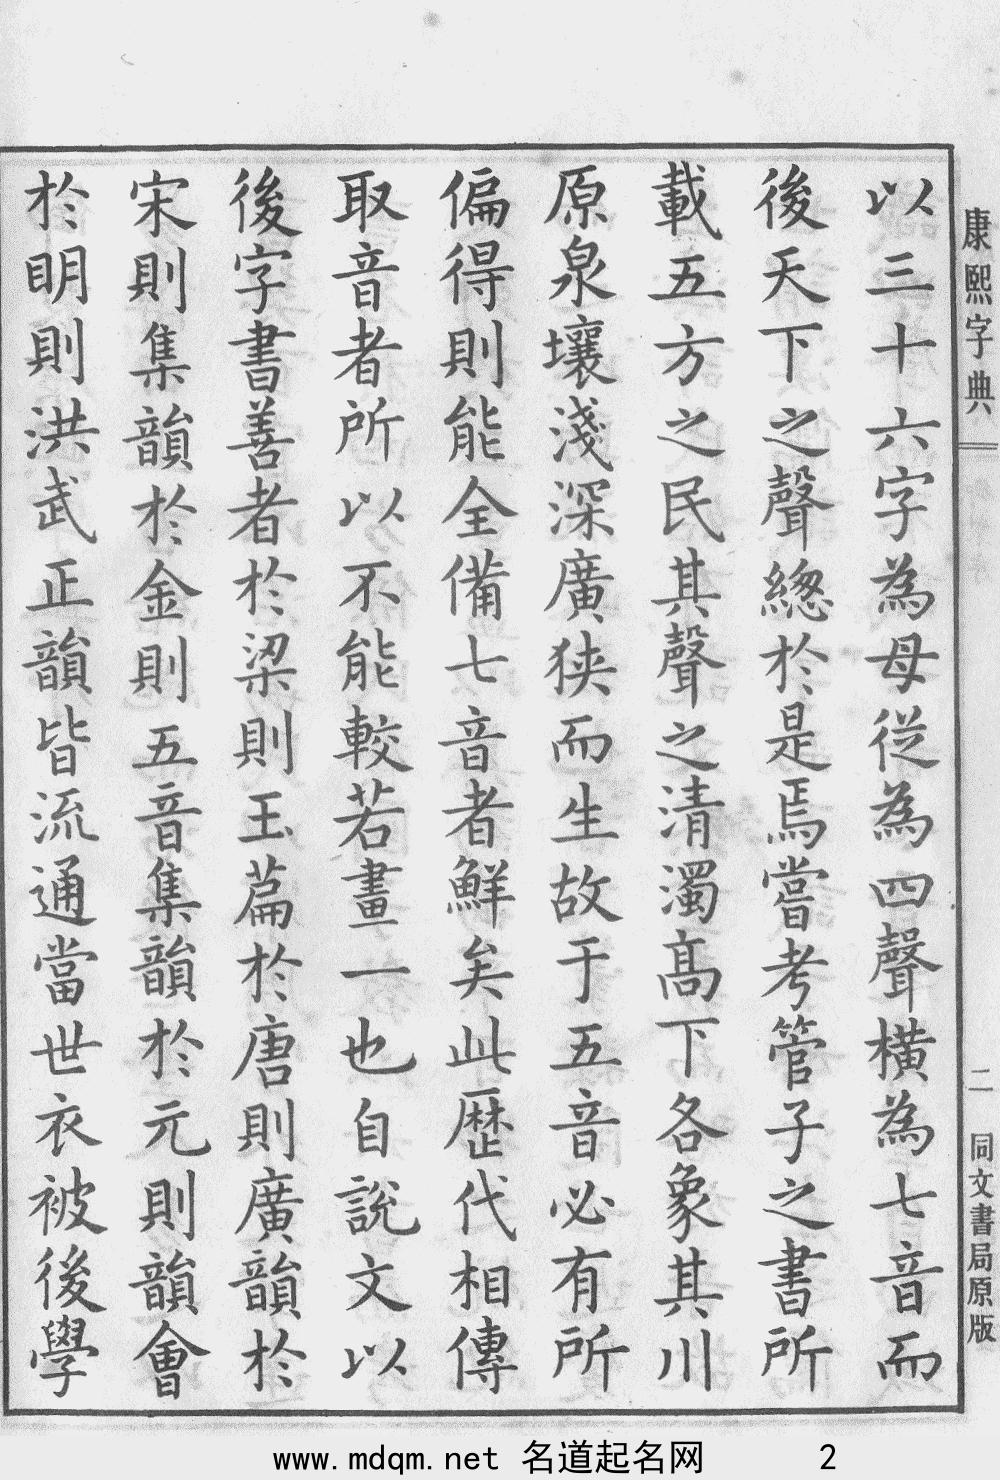 康熙字典
二
同文書局原版
以三十六字為母從為四聲橫為七音而
後天下之聲總於是焉嘗考管子之書所
載五方之民其聲之清濁高下各象其川
原泉壤淺深廣狹而生故于五音必有所
偏得則能全備七音者鮮矣此歷代相傳
取音者所以不能較若畫一也自說文以
後字書善者於梁則玉篇於唐則廣韻於
宋則集韻於金則五音集韻於元則韻會
於明則洪武正韻皆流通當世衣被後學
www.mdqm.net 名道起名网 2